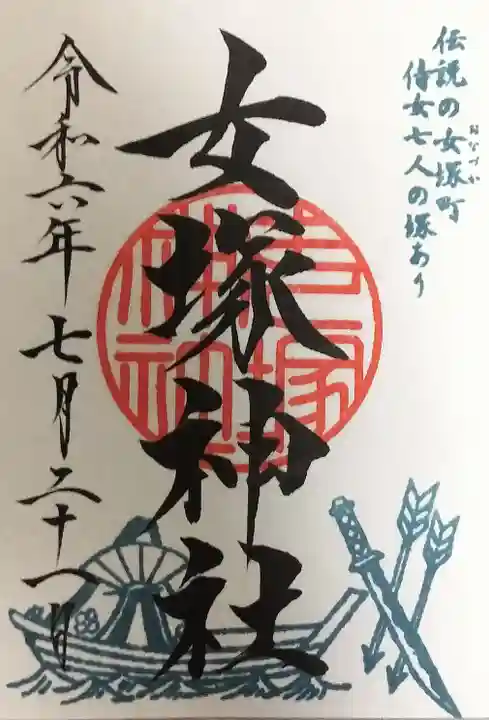 伝説の女塚町
おなづか
侍女七人の塚あり
女塚神社
女塚神社
令和六年七月二十八日